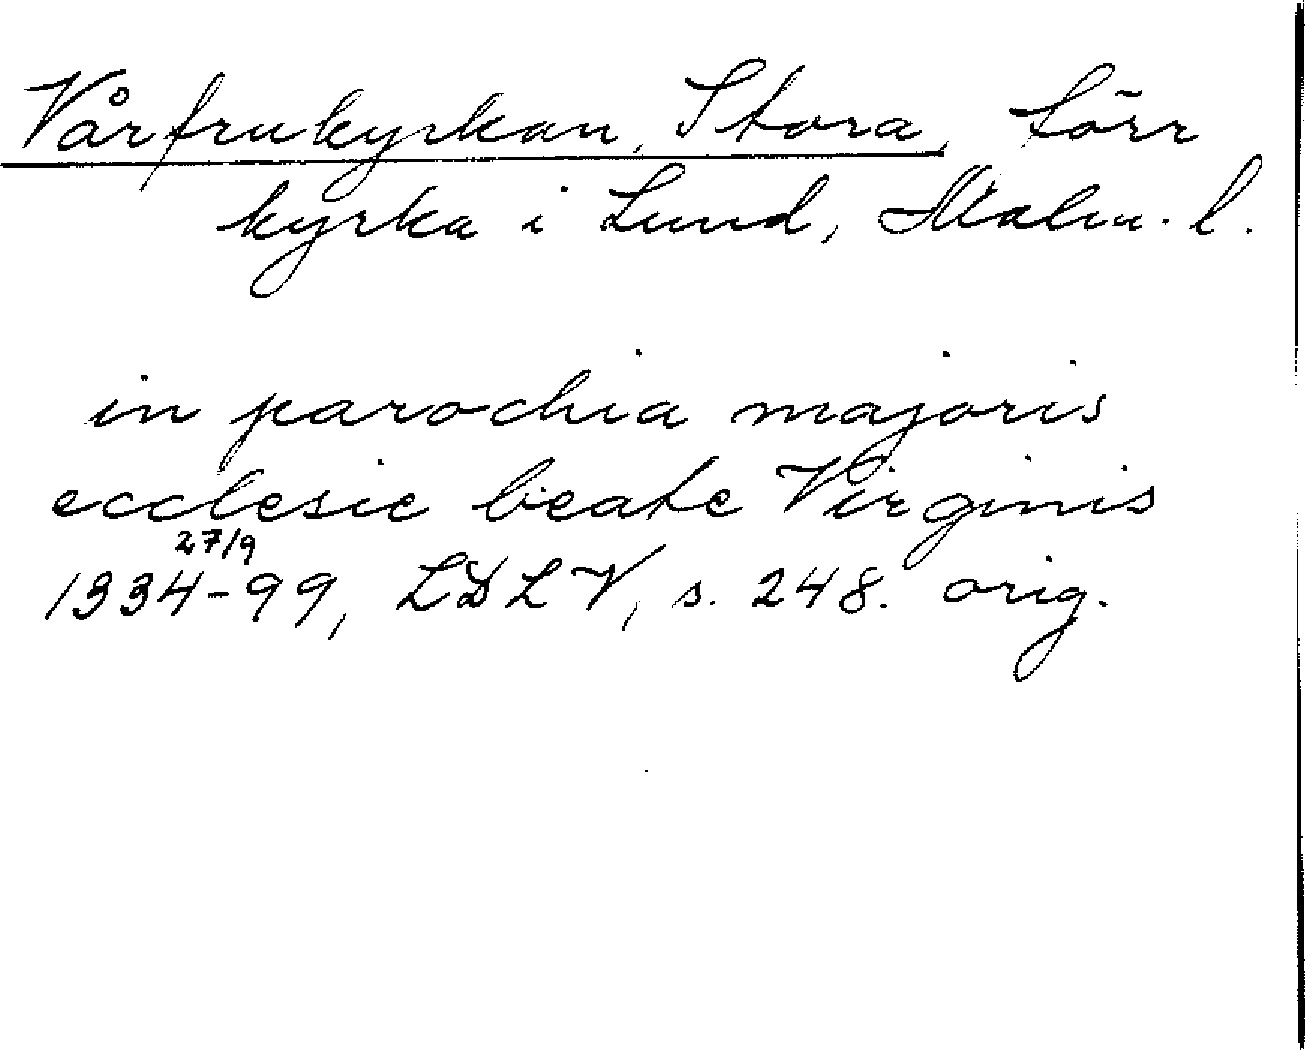 Vårfrukyrkan, Stora, förr
kyrka i Lund, Malm. l.
in parochia majoris
ecclesie beate Virginis
27/9
1334-99, LDLV, s. 248. orig.